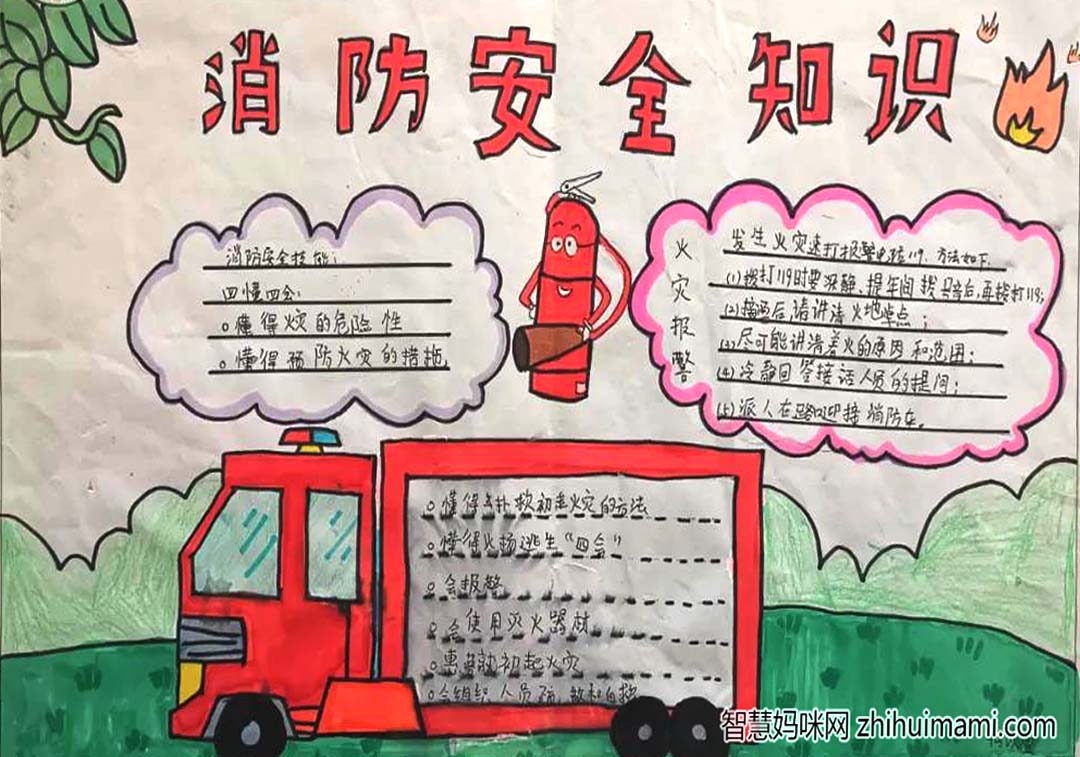 消防安全知识
消防安全技能:
四懂四会:
懂得火灾的危险性
懂得预防火灾的措施
火灾报警
发生火灾速打报警电话119、方法如下
(1)拨打119时要沉静、提 间 拨 再拨打119;
(2)接通后,请讲清火地点;
(3)尽可能讲清着火的原因和范围;
(4)冷静回答接话人员的提问;
(5)派人在路口迎接消防车。
懂得 扑救初 火灾的方法
懂得火场逃生"四会"
会报警
会使用灭火器材
初起火灾
会组织人员疏散和自救
智慧妈咪网 zhihuimami.com